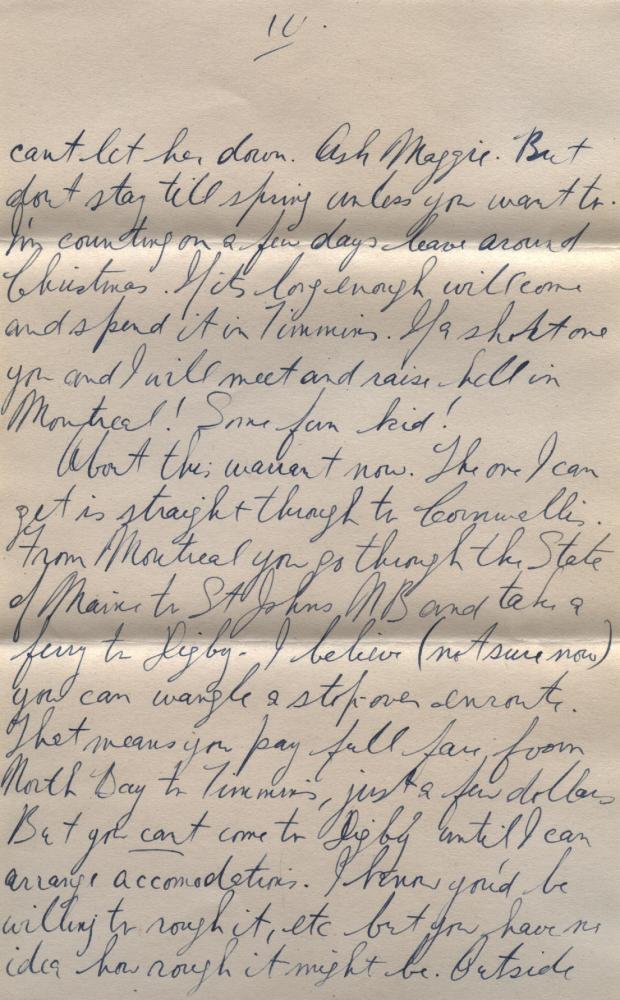 10.
cant let her down. Ask Maggie. But
dont stay till spring unless you want to.
I'm counting on a few days leave around
Christmas. If its long enough will come
and spend it in Timmins. If a short one
you and I will meet and raise hell in
Montreal! Some fun kid!
About this warrant now. The one I can
get is straight through to Cornwallis.
From Montreal you go through the State
of Maine to St Johns NB and take a
ferry to Digby - I believe (not sure now)
you can wangle a stop-over enroute.
That means you pay full fare from
North Bay to Timmins, just a few dollars
But you cant come to Digby until I can
arrange accomodations. I know you'd be
willing to rough it, etc but you have no
idea how rough it might be. Outside